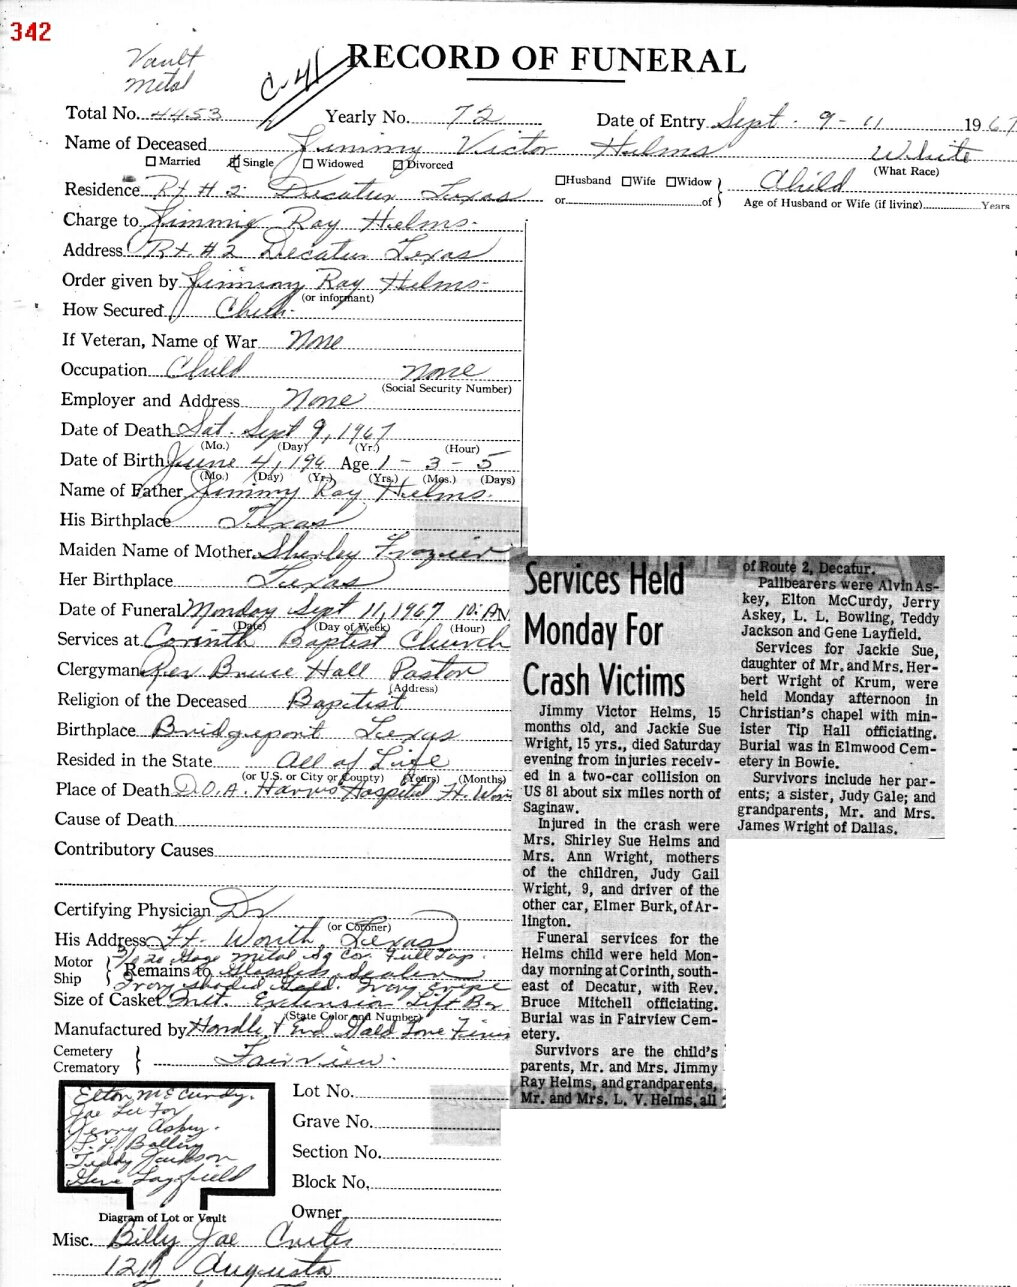 342
Vault
Metal
C-41
RECORD OF FUNERAL
Total No. 4453 Yearly No. 72 Date of Entry Sept. 9-11 1967
Name of Deceased Jimmy Victor Helms White
Married Single Widowed Divorced (What Race)
Residence Rt #2 Decatur Texas Husband Wife Widow Child
or of Age of Husband or Wife (if living) Years
Charge to Jimmie Ray Helms.
Address Rt. #2 Decatur Texas
Order given by Jimmy Ray Helms.
(or informant)
How Secured
If Veteran, Name of War None
Occupation Child None
(Social Security Number)
Employer and Address None
Date of Death Sat. Sept 9, 1967
(Mo.) (Day) (Yr.) (Hour)
Date of Birth June 4, 196 Age 1-3-5
(Mo.) (Day) (Yr.) (Yrs.) (Mos.) (Days)
Name of Father Jimmy Ray Helms.
His Birthplace Texas
Maiden Name of Mother Shirley Frozier
Her Birthplace Texas
Date of Funeral Monday Sept 11, 1967 10: AM
(Date) (Day of Week) (Hour)
Services at Corinth Baptist Church
Clergyman Rev Bruce Hall Pastor
(Address)
Religion of the Deceased Baptist
Birthplace Bridgeport Texas
Resided in the State All of Life
(or U.S. or City or County) (Years) (Months)
Place of Death D.O.A. Harris Hospital Ft. Wor
Cause of Death
Contributory Causes
Certifying Physician Dr
(or Coroner)
His Address Ft. Worth, Texas
20 Gage Metal Sq Cor. Full Top.
Motor
Ship Remains to Glassleks Sealer
Ivory shaded Gold. Ivory crepe
Size of Casket Met. Extension Lift Bar
(State Color and Number)
Manufactured by Handle & End Gold Tone Finis
Cemetery
Crematory Fairview.
Elton McCurdy.
Joe Lee Fox
Jerry Askey.
L. L. Bolling
Teddy Jackson
Gene Layfield
Diagram of Lot or Vault
Lot No.
Grave No.
Section No.
Block No.
Owner
Misc. Billy Joe Curtis
1217 Augusta
Services Held
Monday For
Crash Victims
Jimmy Victor Helms, 15
months old, and Jackie Sue
Wright, 15 yrs., died Saturday
evening from injuries receiv-
ed in a two-car collision on
US 81 about six miles north of
Saginaw.
Injured in the crash were
Mrs. Shirley Sue Helms and
Mrs. Ann Wright, mothers
of the children, Judy Gail
Wright, 9, and driver of the
other car, Elmer Burk, of Ar-
lington.
Funeral services for the
Helms child were held Mon-
day morning at Corinth, south-
east of Decatur, with Rev.
Bruce Mitchell officiating.
Burial was in Fairview Cem-
etery.
Survivors are the child's
parents, Mr. and Mrs. Jimmy
Ray Helms, and grandparents,
Mr. and Mrs. L. V. Helms, all
of Route 2, Decatur.
Pallbearers were Alvin As-
key, Elton McCurdy, Jerry
Askey, L. L. Bowling, Teddy
Jackson and Gene Layfield.
Services for Jackie Sue,
daughter of Mr. and Mrs. Her-
bert Wright of Krum, were
held Monday afternoon in
Christian's chapel with min-
ister Tip Hall officiating.
Burial was in Elmwood Cem-
etery in Bowie.
Survivors include her par-
ents; a sister, Judy Gale; and
grandparents, Mr. and Mrs.
James Wright of Dallas.